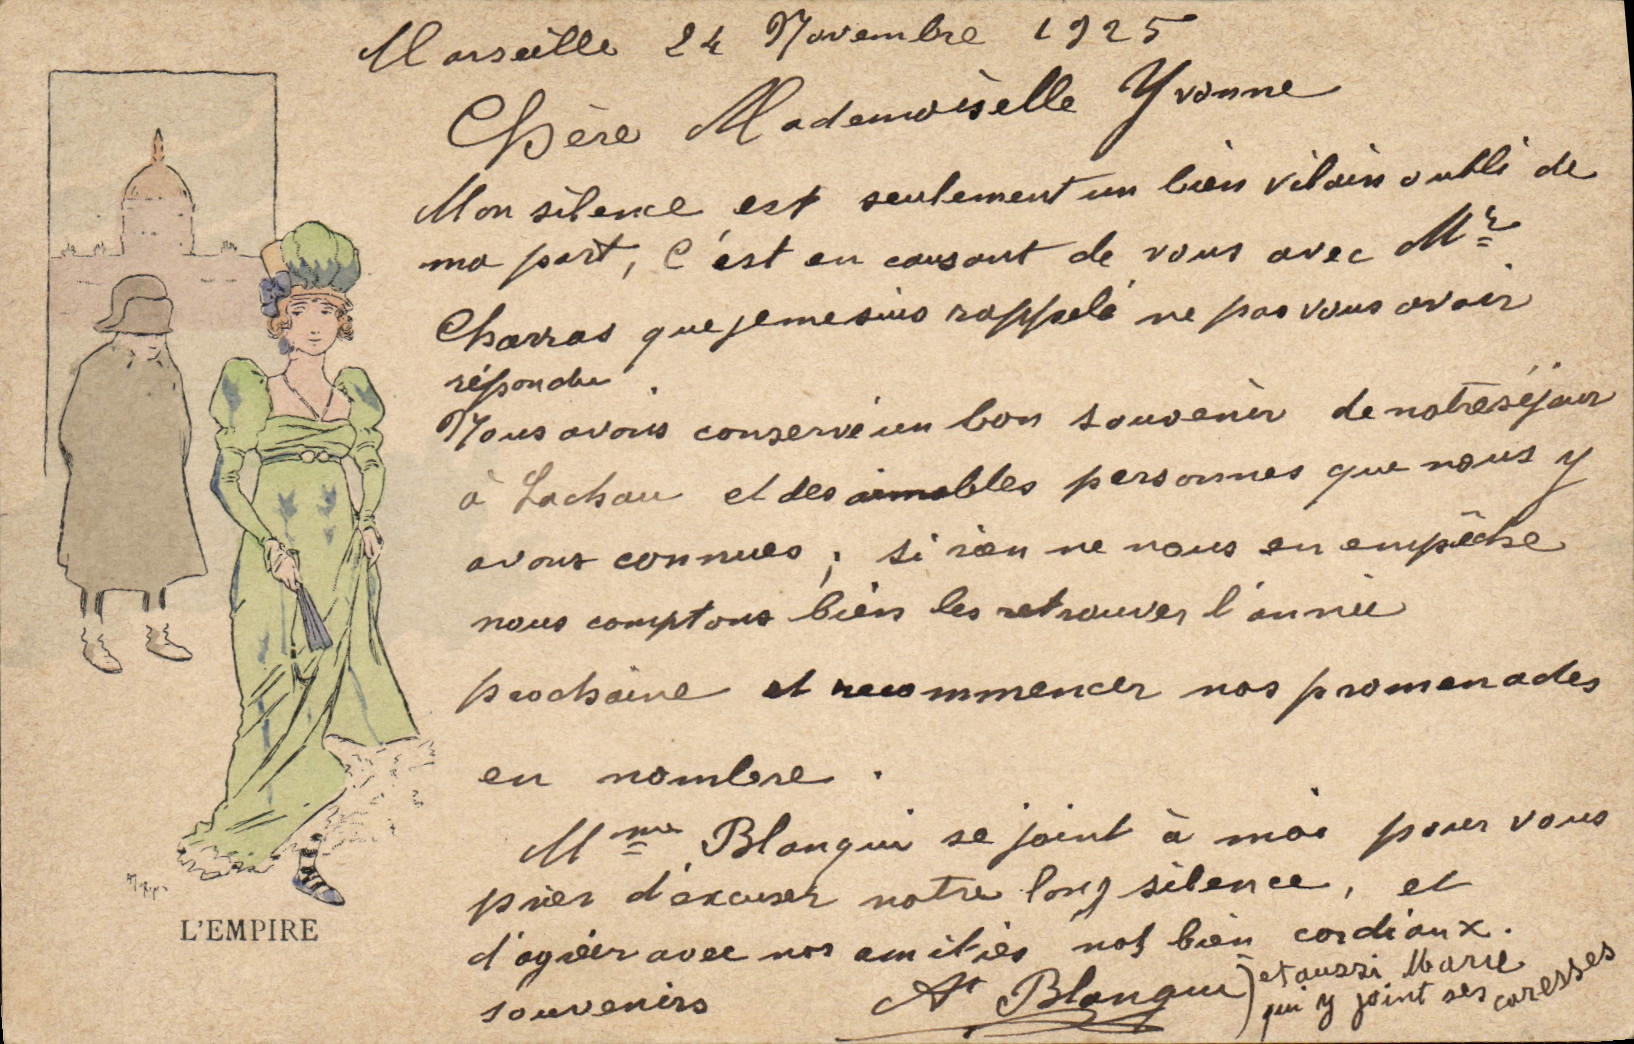 Marseille 24 Novembre 1925
Chère Mademoiselle Yvonne
Mon silence est seulement un bien vilain oubli de
ma part, c'est en causant de vous avec Mr
Charras que je me suis rappelé ne pas vous avoir
répondu.
Nous avons conservé un bon souvenir de notre séjour
à Lachau et des aimables personnes que nous y
avons connues; si rien ne nous en empêche
nous comptons bien les retrouver l'année
prochaine et recommencer nos promenades
en nombre.
Mme Blanqui se joint à moi pour vous
prier d'excuser notre long silence, et
d'agréer avec nos amitiés nos bien cordiaux.
souvenirs
At Blanqui
et aussi Marie
qui y joint ses caresses
L'EMPIRE